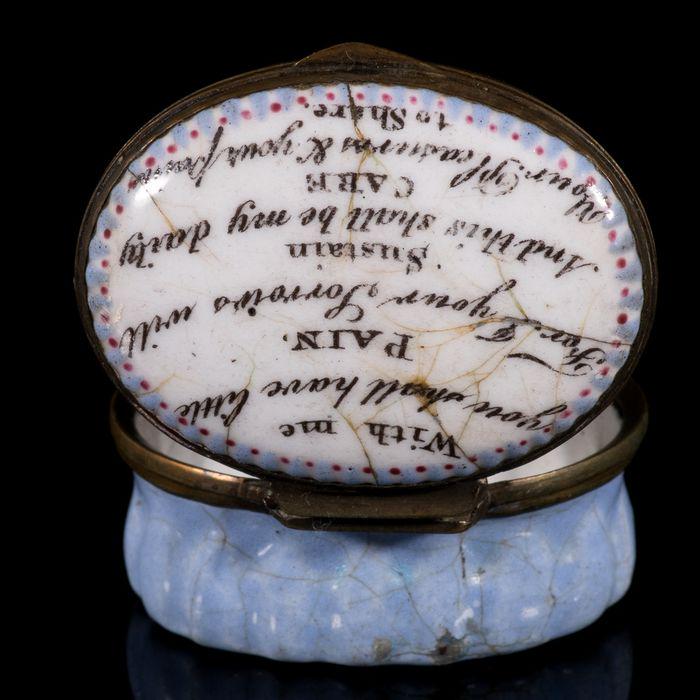 With me
you shall have little
PAIN.
For I your Sorrows will
Sustain
And this shall be my daily
CARE
Your Pleasures & your pains
to Share.